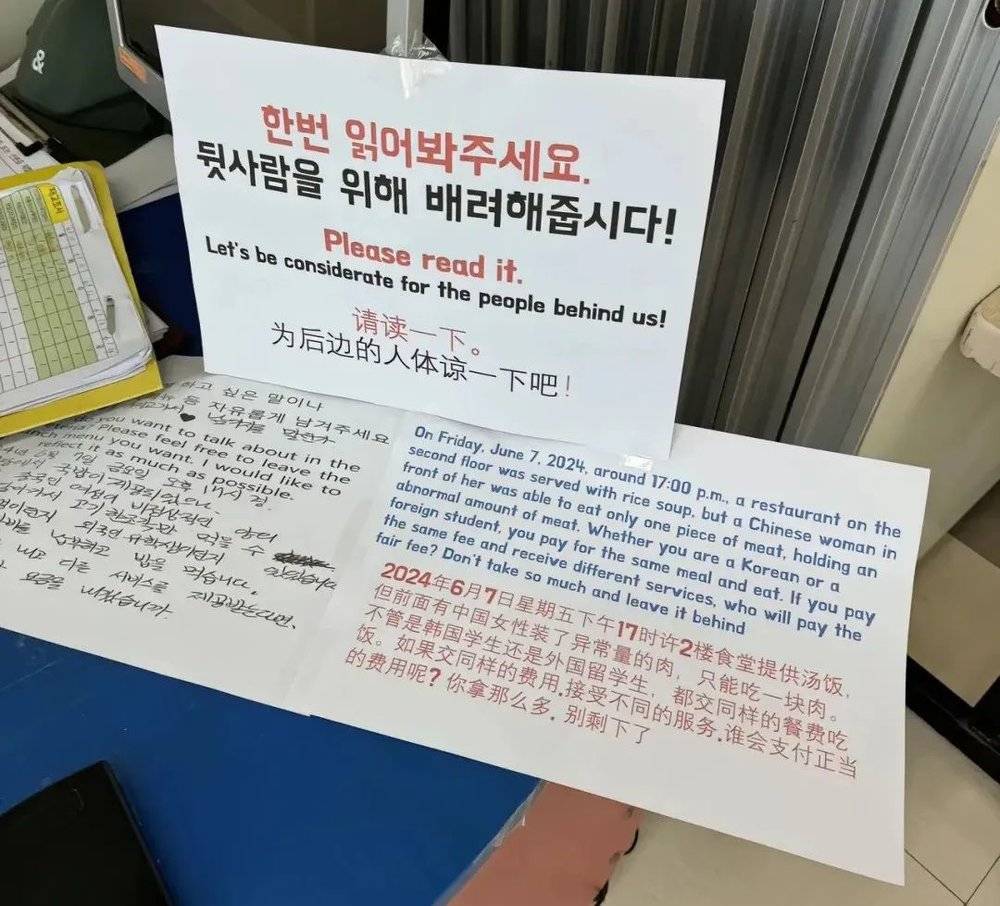 &
한번 읽어봐주세요.
뒷사람을 위해 배려해줍시다!
Please read it.
Let's be considerate for the people behind us!
请读一下。
为后边的人体谅一下吧!
하고 싶은 말이나
등 자유롭게 남겨주세요
you want to talk about in the
Please feel free to leave the
menu you want. I would like to
reflect it as much as possible.
7일 금요일 오후 17시 경
국밥이
중국인 여성이 비정상적인 양의
고기 한조각만 먹을 수
외국인 유학생이던지
밥을 먹습니다.
다른 서비스를 제공받는다면,
요금을
On Friday, June 7, 2024, around 17:00 p.m., a restaurant on the
second floor was served with rice soup, but a Chinese woman in
front of her was able to eat only one piece of meat, holding an
abnormal amount of meat. Whether you are a Korean or a
foreign student, you pay for the same meal and eat. If you pay
the same fee and receive different services, who will pay the
fair fee? Don't take so much and leave it behind
2024年6月7日星期五下午17时许2楼食堂提供汤饭,
但前面有中国女性装了异常量的肉, 只能吃一块肉。
不管是韩国学生还是外国留学生, 都交同样的餐费吃
饭。如果交同样的费用.接受不同的服务.谁会支付正当
的费用呢? 你拿那么多. 别剩下了